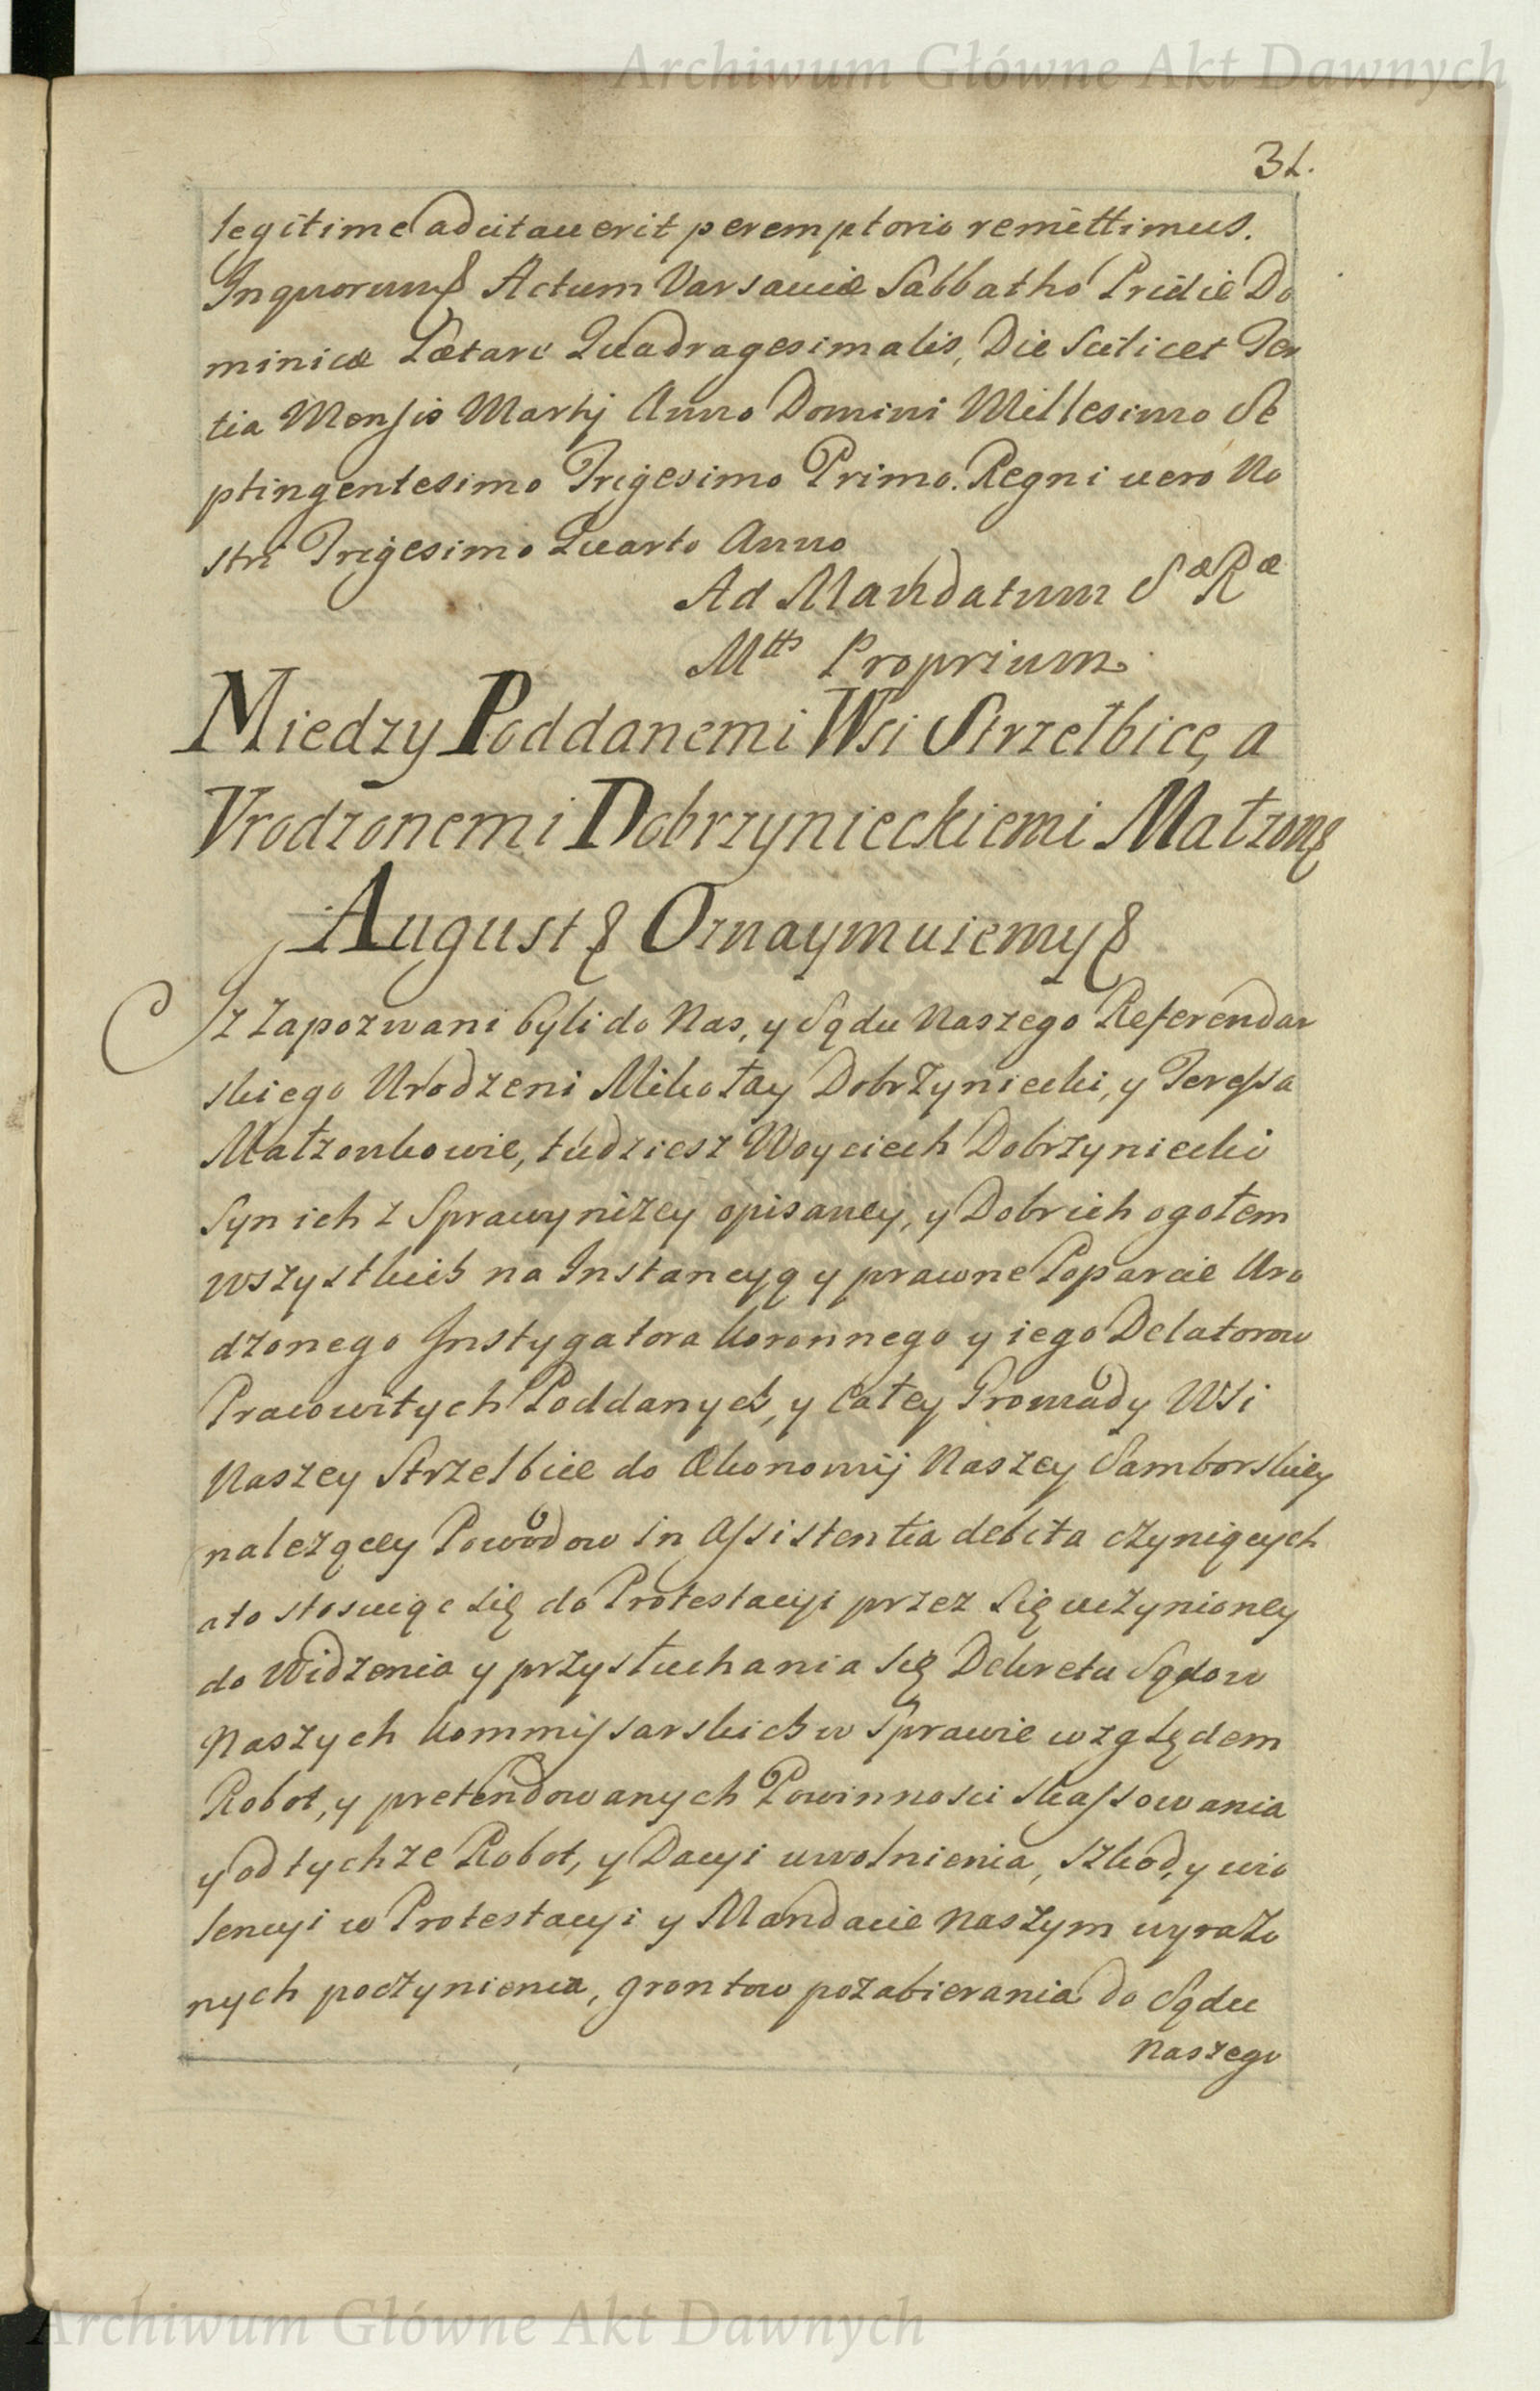 Archiwum Główne Akt Dawnych
31.
legitime adcitauerit peremptorio remittimus.
Inquorum& Actum Varsauiæ Sabbatho Pridie Do
minicæ Lætare Quadragesimalis, Die Scilicet Ter
tia Mensis Martij Anno Domini Millesimo Se
ptingentesimo Trigesimo Primo. Regni uero No
stri Trigesimo Quarto Anno
Ad Mandatum Sæ Ræ
Mttis Proprium
Miedzy Poddanemi Wsi Strzelbice, a
Vrodzonemi Dobrzynieckiemi Małzon&
August& Oznaymuiemy&
Iz Zapozwani byli do Nas, y Sądu Naszego Referendar
skiego Urodzeni Mikołay Dobrzyniecki, y Teressa
Małzonkowie, tudziesz Woyciech Dobrzyniecki
Syn ich z Sprawy niżey opisaney, y Dobr ich ogołem
wszystkich na Instancyą y prawne Poparcie Uro
dzonego Instygatora Koronnego y iego Delatorow
Pracowitych Poddanych, y całey Gromady Wsi
Naszey Strzelbice do Ekonomij Naszey Samborskiey
nalezącey Powodow in Assistentia debita czyniących
ato stosuiąc się do Protestacyi przez się uczynioney
do Widzenia y przysłuchania się Dekretu Sądow
Naszych Kommissarskich w Sprawie względem
Robot, y pretendowanych Powinnosci skassowania
y od tychze Robot, y Dacyi uwolnienia, szkod, y wio
lencyi w Protestacyi y Mandacie Naszym wyrażo
nych poczynienia, grontow pozabierania do Sądu
Naszego
Archiwum Główne Akt Dawnych